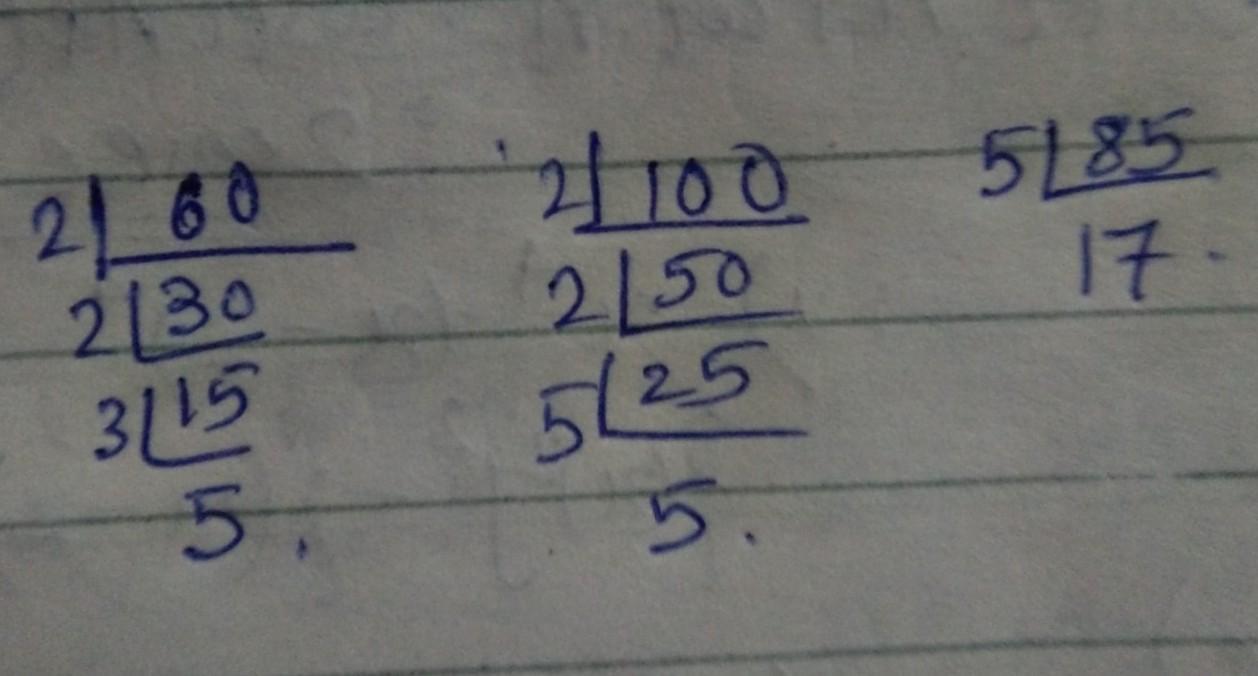 2 60
2 30
3 15
5.
2 100
2 50
5 25
5.
5 85
17.